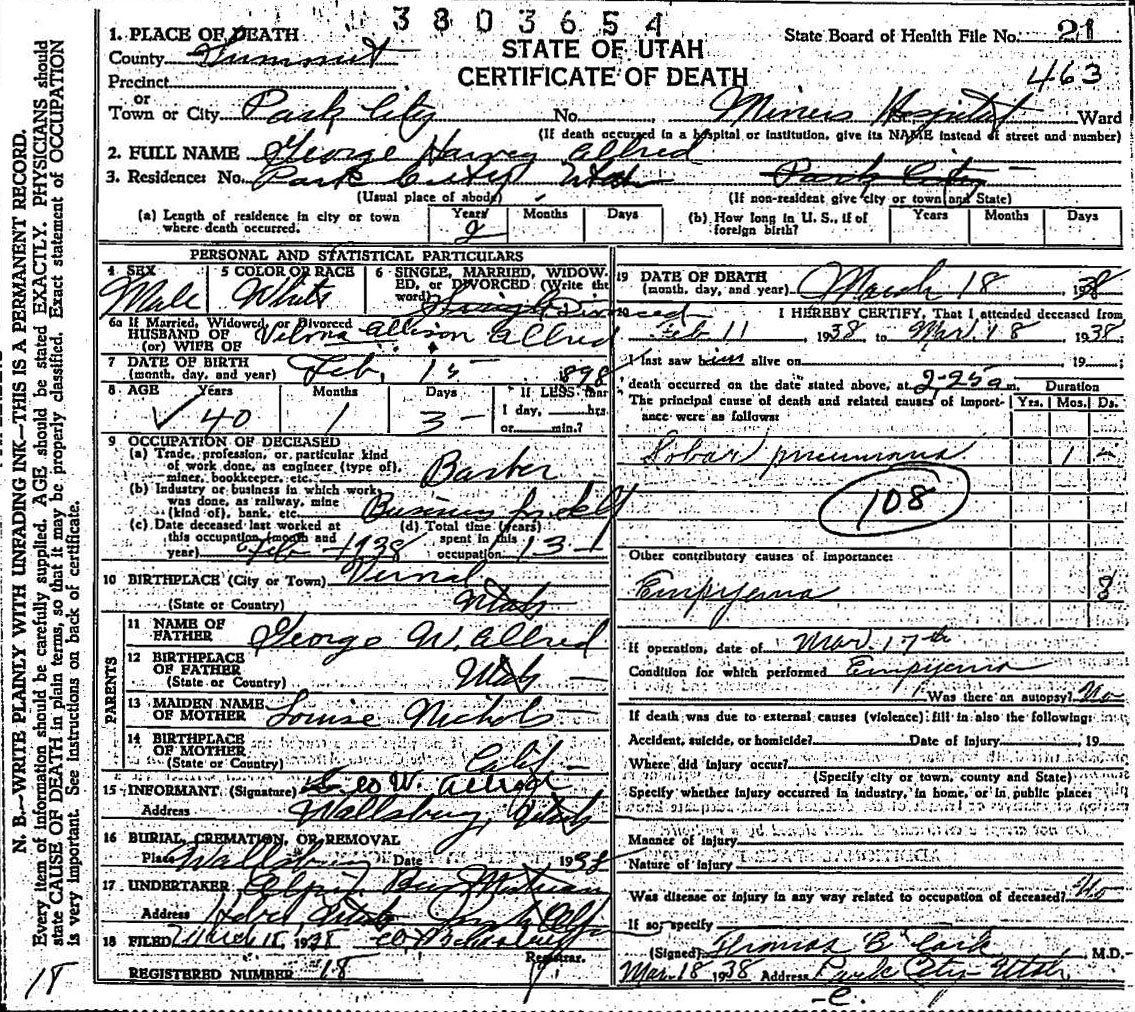 3803654
1. PLACE OF DEATH
STATE OF UTAH
CERTIFICATE OF DEATH
State Board of Health File No. 21
463
County Summit
Precinct
or
Town or City Park City No. Miners Hospital Ward
(If death occurred in a hospital or institution, give its NAME instead of street and number)
2. FULL NAME George Harvey Allred
3. Residence: No. Park City Utah Park City
(Usual place of abode) (If non-resident give city or town and State)
(a) Length of residence in city or town where death occurred. Years 2 Months Days
(b) How long in U. S., if of foreign birth? Years Months Days
PERSONAL AND STATISTICAL PARTICULARS
4 SEX Male
5 COLOR OR RACE White
6 SINGLE, MARRIED, WIDOWED, or DIVORCED (Write the word) Divorced
6a If Married, Widowed, or Divorced
HUSBAND OF
(or) WIFE OF Velma Allison Allred
7 DATE OF BIRTH
(month, day, and year) Feb. 15 1898
8 AGE Years 40 Months 1 Days 3 If LESS than
1 day, hrs.
or min.?
9 OCCUPATION OF DECEASED
(a) Trade, profession, or particular kind
of work done, as engineer (type of),
miner, bookkeeper, etc. Barber
(b) Industry or business in which work
was done, as railway, mine
(kind of), bank, etc. Business for self
(c) Date deceased last worked at
this occupation (month and
year) Feb - 1938
(d) Total time (years)
spent in this
occupation 13
10 BIRTHPLACE (City or Town) Vernal
(State or Country) Utah
PARENTS
11 NAME OF
FATHER George W. Allred
12 BIRTHPLACE
OF FATHER
(State or Country) Utah
13 MAIDEN NAME
OF MOTHER Louise Nichols
14 BIRTHPLACE
OF MOTHER
(State or Country) Calif
15 INFORMANT (Signature) Geo W. Allred
Address Wallsburg, Utah
16 BURIAL, CREMATION, OR REMOVAL
Place Wallsburg Date 1938
17 UNDERTAKER
Address Heber Utah
18 FILED March 18, 1938
Registrar.
REGISTERED NUMBER 18
19 DATE OF DEATH
(month, day, and year) March 18 1938
20 I HEREBY CERTIFY, That I attended deceased from
Feb 11, 1938 to Mar. 18 1938
I last saw him alive on 19
death occurred on the date stated above, at 2-25 a m. Duration
The principal cause of death and related causes of importance were as follows: Yrs. Mos. Ds.
Lobar pneumonia 1
108
Other contributory causes of importance:
Empyema 8
If operation, date of Mar. 17th
Condition for which performed Empyema
Was there an autopsy? No
If death was due to external causes (violence) fill in also the following:
Accident, suicide, or homicide? Date of Injury , 19
Where did injury occur?
(Specify city or town, county and State)
Specify whether injury occurred in industry, in home, or in public place:
Manner of injury
Nature of injury
Was disease or injury in any way related to occupation of deceased? No
If so, specify
(Signed) Thomas B. , M.D.
Mar. 18 1938 Address Park City Utah
N. B.—WRITE PLAINLY WITH UNFADING INK—THIS IS A PERMANENT RECORD.
Every item of information should be carefully supplied. AGE should be stated EXACTLY. PHYSICIANS should
state CAUSE OF DEATH in plain terms, so that it may be properly classified. Exact statement of OCCUPATION
is very important. See instructions on back of certificate.
18